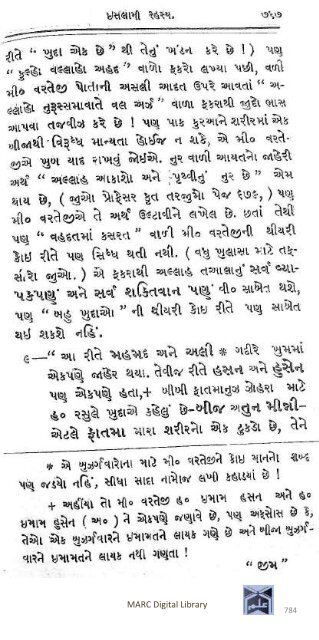 ઇસલામી રહસ્ય. ૭૬૭
રીતે “ ખુદા એક છે ” થી તેનું ખંડન કરે છે !) પણ
“ કુલ્હો વલ્લાહો અહદ ” વાળો ફકરો લખ્યા પછી, વળી
મી૦ વરતેજી પોતાની અસલી આદત ઉપરે આવતાં “ અ-
લ્લાહો નુરૂસ્સમાવાતે વલ અર્ઝ ” વાળા ફકરાથી જુદો ભાસ
આપવા તજવીઝ કરે છે ! પણ પાક કુરઆને શરીફમાં એક
બીજાથી વિરૂધ્ધ માન્યતા હોઈજ ન શકે, એ મી૦ વરતે-
જીએ ખુબ યાદ રાખવું જોઈએ. નુર વાળી આયતનો જાહેરી
અર્થ “ અલ્લાહ આકાશો અને પૃથ્વીનું નુર છે ” એમ
થાય છે, (જુઓ પ્રોફેસર કૃત તરજુમો પેજ ૬૭૯,) પણ
મી૦ વરતેજીએ તે અર્થ ઉલ્ટાવીને લખેલ છે. છતાં તેથી
પણ “ વહદતમાં કસરત ” વાળી મી૦ વરતેજીની થીયરી
કોઇ રીતે પણ સિધ્ધ થતી નથી. ( વધુ ખુલાસા માટે તફ-
સીરો જુઓ. ) એ ફકરાથી અલ્લાહ તઆલાનું સર્વ વ્યા-
પકપણું અને સર્વ શક્તિવાન પણું વી૦ સાબેત થશે,
પણ “ બહુ ખુદાઓ ” ની થીયરી કોઇ રીતે પણ સાબેત
થઇ શકશે નહિં.
૯—“ આ રીતે મહમદ અને અલી * ગદીરે ખુમમાં
એકપણે જાહેર થયા. તેવીજ રીતે હસન અને હુસેન
પણ એકપણે હતા,+ બીબી ફાતમાતુઝ ઝોહરા માટે
હ૦ રસુલે ખુદાએ કહેલું છે-બીજ અતુન મીન્ની-
એટલે ફાતમા મારા શરીરનો એક ટુકડો છે, તેને
* એ બુઝર્ગવારોના માટે મી૦ વરતેજીને કોઇ માનનો શબ્દ
પણ જડયો નહિં, સીધા સાદા નામોજ લખી કહાડયાં છે !
+ અહીંયા તો મી૦ વરતેજી હ૦ ઇમામ હસન અને હ૦
ઇમામ હુસેન ( અ૦ ) ને એકપણે જણાવે છે, પણ અફસોસ છે કે,
તેઓ એક બુઝર્ગવારને ઇમામતને લાયક ગણે છે અને બીજા બુઝર્ગ-
વારને ઇમામતને લાયક નથી ગણતા !
“ જીમ ”
MARC Digital Library
784